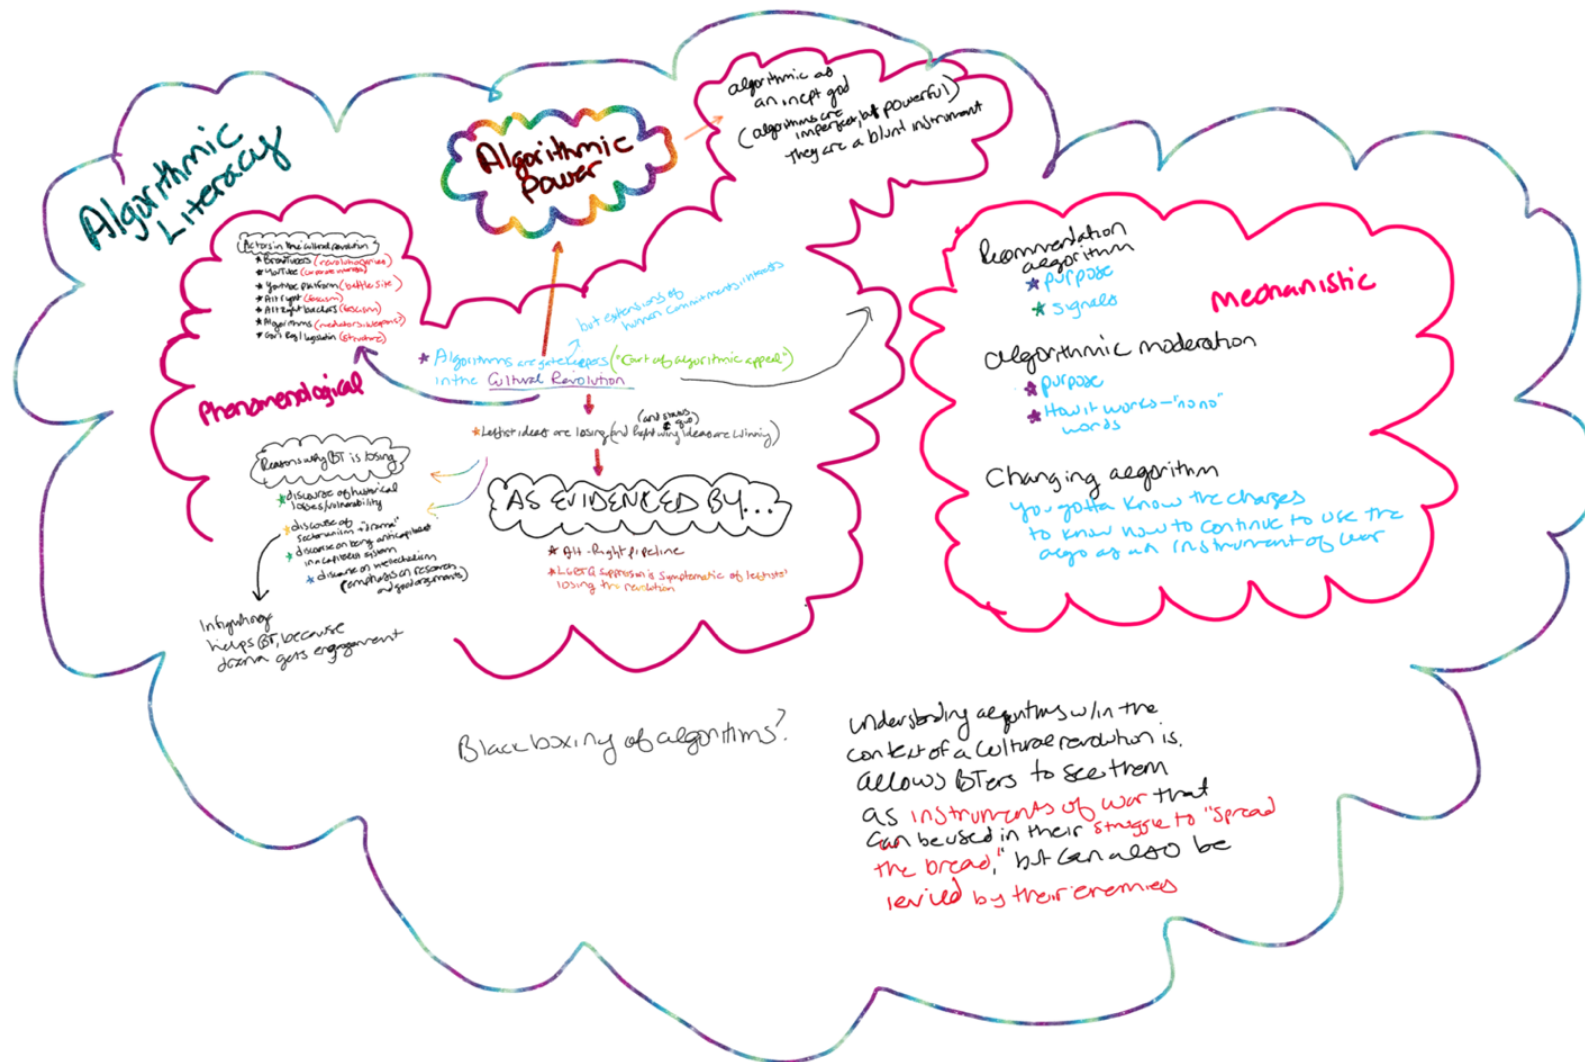 Algorithmic
Literacy
Algorithmic
Power
algorithmic as
an inept god
(algorithms are
imperfect, but powerful)
they are a blunt instrument
Actors in the cultural revolution
* BreadTubers (revolutionaries)
* YouTube (corporate interests)
* YouTube platform (battle site)
* Alt right (fascism)
* Alt Right backers (fascism)
* Algorithms (mediators, weapons?)
* Gov't Reg/legislation (structure)
Phenomenological
but extensions of
human commitments/interests
* Algorithms are gatekeepers ("Court of algorithmic appeal")
in the Cultural Revolution
(and status
quo)
* Leftist ideas are losing (and Right wing ideas are winning)
Reasons why BT is losing
* discourse of historical
losses/vulnerability
* discourse of
sectarianism + "drama"
* discourse on being anticapitalist
in a capitalist system
* discourse on intellectualism
(emphasis on research
and good arguments)
Infighting
helps BT, because
drama gets engagement
AS EVIDENCED BY...
* Alt-Right pipeline
* LGBTQ suppression is symptomatic of leftists'
losing the revolution
Mechanistic
Recommendation
algorithm
* purpose
* signals
algorithmic moderation
* purpose
* How it works - "no no"
words
Changing algorithm
you gotta know the changes
to know how to continue to use the
algo as an instrument of war
Blackboxing of algorithms?
understanding algorithms w/in the
context of a cultural revolution is.
allows BTers to see them
as instruments of war that
can be used in their struggle to "spread
the bread," but can also be
levied by their enemies